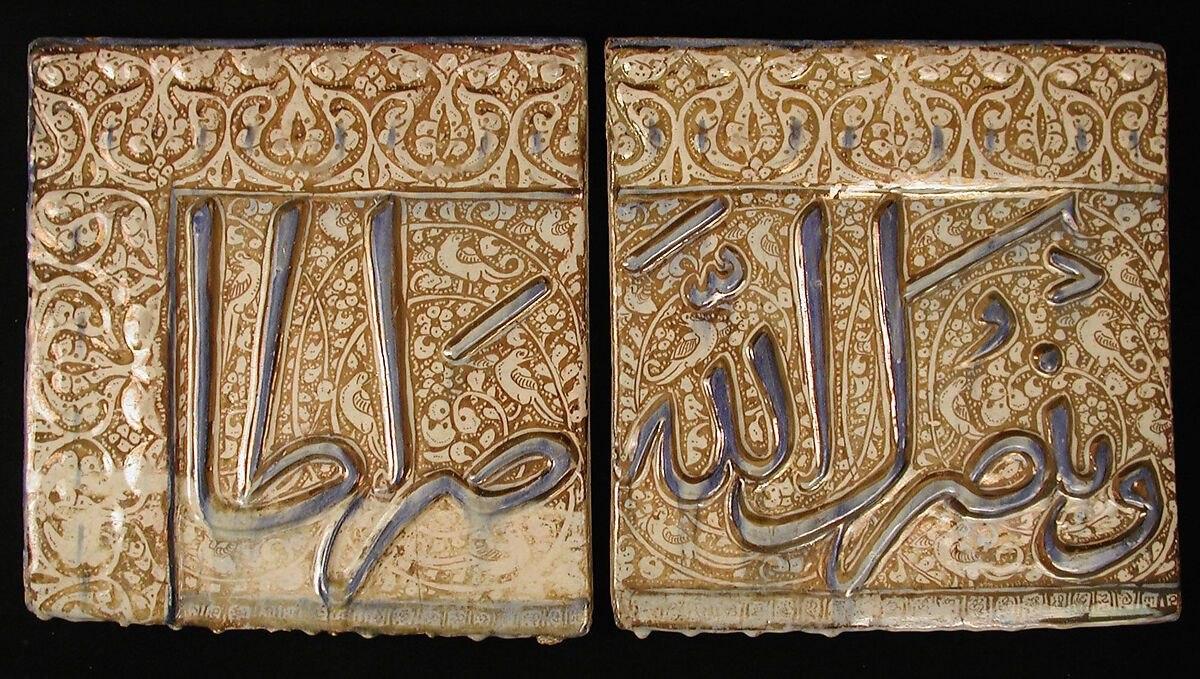 وينصرك الله
صراطا